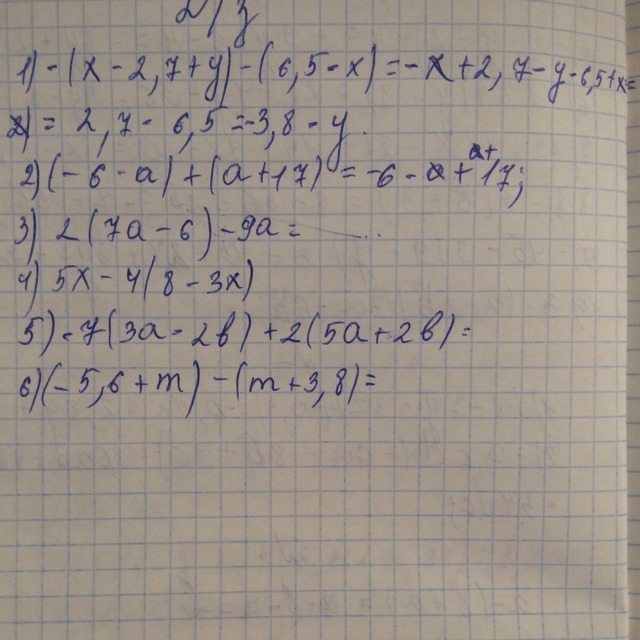 Д/З
1) -(x - 2,7 + y) - (6,5 - x) = -x + 2,7 - y - 6,5 + x =
= 2,7 - 6,5 = -3,8 - y.
2) (-6 - a) + (a + 17) = -6 - a + a + 17;
3) 2(7a - 6) - 9a = ...
4) 5x - 4(8 - 3x)
5) -7(3a - 2b) + 2(5a + 2b) =
6) (-5,6 + m) - (m + 3,8) =